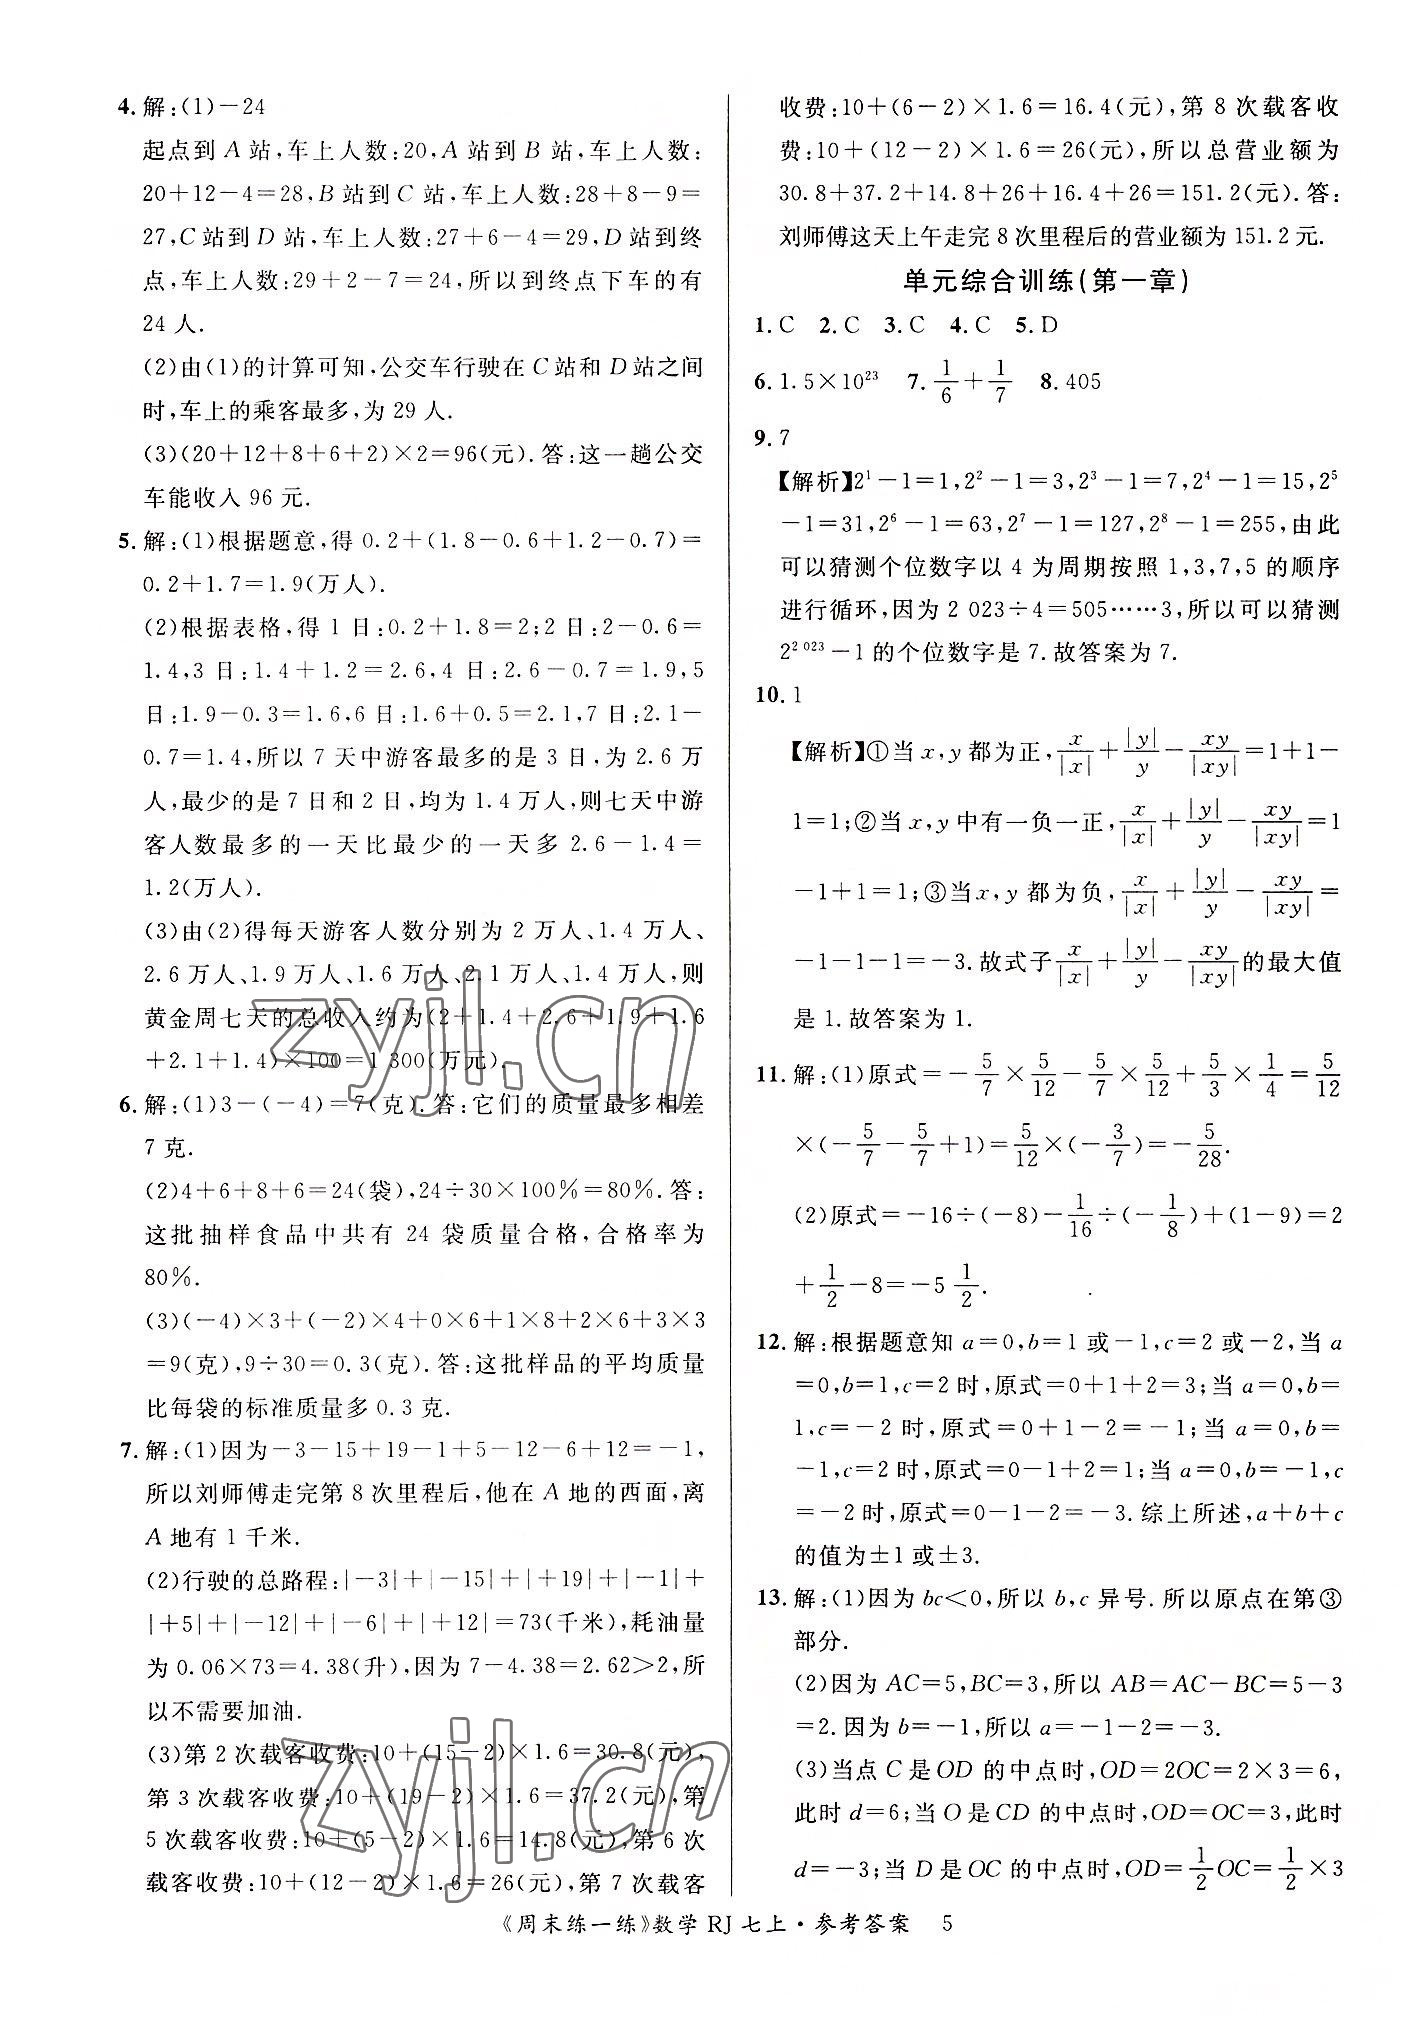 4. 解:(1)－24
起点到 A 站,车上人数:20,A 站到 B 站,车上人数:
20＋12－4＝28,B 站到 C 站,车上人数:28＋8－9＝
27,C 站到 D 站,车上人数:27＋6－4＝29,D 站到终
点,车上人数:29＋2－7＝24,所以到终点下车的有
24 人.
(2)由(1)的计算可知,公交车行驶在 C 站和 D 站之间
时,车上的乘客最多,为 29 人.
(3)(20＋12＋8＋6＋2)×2＝96(元).答:这一趟公交
车能收入 96 元.
5. 解:(1)根据题意,得 0.2＋(1.8－0.6＋1.2－0.7)＝
0.2＋1.7＝1.9(万人).
(2)根据表格,得 1 日:0.2＋1.8＝2;2 日:2－0.6＝
1.4,3 日:1.4＋1.2＝2.6,4 日:2.6－0.7＝1.9,5
日:1.9－0.3＝1.6,6 日:1.6＋0.5＝2.1,7 日:2.1－
0.7＝1.4,所以 7 天中游客最多的是 3 日,为 2.6 万
人,最少的是 7 日和 2 日,均为 1.4 万人,则七天中游
客人数最多的一天比最少的一天多 2.6－1.4＝
1.2(万人).
(3)由(2)得每天游客人数分别为 2 万人、1.4 万人、
2.6 万人、1.9 万人、1.6 万人、2.1 万人、1.4 万人,则
黄金周七天的总收入约为(2＋1.4＋2.6＋1.9＋1.6
＋2.1＋1.4)×100＝1 300(万元).
6. 解:(1)3－(－4)＝7(克).答:它们的质量最多相差
7 克.
(2)4＋6＋8＋6＝24(袋),24÷30×100%＝80%.答:
这批抽样食品中共有 24 袋质量合格,合格率为
80%.
(3)(－4)×3＋(－2)×4＋0×6＋1×8＋2×6＋3×3
＝9(克),9÷30＝0.3(克).答:这批样品的平均质量
比每袋的标准质量多 0.3 克.
7. 解:(1)因为－3－15＋19－1＋5－12－6＋12＝－1,
所以刘师傅走完第 8 次里程后,他在 A 地的西面,离
A 地有 1 千米.
(2)行驶的总路程:|－3|＋|－15|＋|＋19|＋|－1|＋
|＋5|＋|－12|＋|－6|＋|＋12|＝73(千米),耗油量
为 0.06×73＝4.38(升),因为 7－4.38＝2.62＞2,所
以不需要加油.
(3)第 2 次载客收费:10＋(15－2)×1.6＝30.8(元),
第 3 次载客收费:10＋(19－2)×1.6＝37.2(元),第
5 次载客收费:10＋(5－2)×1.6＝14.8(元),第 6 次
载客收费:10＋(12－2)×1.6＝26(元),第 7 次载客
收费:10＋(6－2)×1.6＝16.4(元),第 8 次载客收
费:10＋(12－2)×1.6＝26(元),所以总营业额为
30.8＋37.2＋14.8＋26＋16.4＋26＝151.2(元).答:
刘师傅这天上午走完 8 次里程后的营业额为 151.2 元.
单元综合训练(第一章)
1. C 2. C 3. C 4. C 5. D
6. 1.5×10²³ 7. 1/6＋1/7 8. 405
9. 7
【解析】2¹－1＝1,2²－1＝3,2³－1＝7,2⁴－1＝15,2⁵
－1＝31,2⁶－1＝63,2⁷－1＝127,2⁸－1＝255,由此
可以猜测个位数字以 4 为周期按照 1,3,7,5 的顺序
进行循环,因为 2 023÷4＝505……3,所以可以猜测
2² ⁰²³－1 的个位数字是 7.故答案为 7.
10. 1
【解析】①当 x,y 都为正,x/|x|＋|y|/y－xy/|xy|＝1＋1－
1＝1;②当 x,y 中有一负一正,x/|x|＋|y|/y－xy/|xy|＝1
－1＋1＝1;③当 x,y 都为负,x/|x|＋|y|/y－xy/|xy|＝
－1－1－1＝－3.故式子x/|x|＋|y|/y－xy/|xy|的最大值
是 1.故答案为 1.
11. 解:(1)原式＝－5/7×5/12－5/7×5/12＋5/3×1/4＝5/12
×(－5/7－5/7＋1)＝5/12×(－3/7)＝－5/28.
(2)原式＝－16÷(－8)－1/16÷(－1/8)＋(1－9)＝2
＋1/2－8＝－5 1/2.
12. 解:根据题意知 a＝0,b＝1 或－1,c＝2 或－2,当 a
＝0,b＝1,c＝2 时,原式＝0＋1＋2＝3;当 a＝0,b＝
1,c＝－2 时,原式＝0＋1－2＝－1;当 a＝0,b＝
－1,c＝2 时,原式＝0－1＋2＝1;当 a＝0,b＝－1,c
＝－2 时,原式＝0－1－2＝－3.综上所述,a＋b＋c
的值为±1 或±3.
13. 解:(1)因为 bc＜0,所以 b,c 异号.所以原点在第③
部分.
(2)因为 AC＝5,BC＝3,所以 AB＝AC－BC＝5－3
＝2.因为 b＝－1,所以 a＝－1－2＝－3.
(3)当点 C 是 OD 的中点时,OD＝2OC＝2×3＝6,
此时 d＝6;当 O 是 CD 的中点时,OD＝OC＝3,此时
d＝－3;当 D 是 OC 的中点时,OD＝1/2OC＝1/2×3
《周末练一练》数学 RJ 七上·参考答案 5
zyjl.cn
zyjl.cn